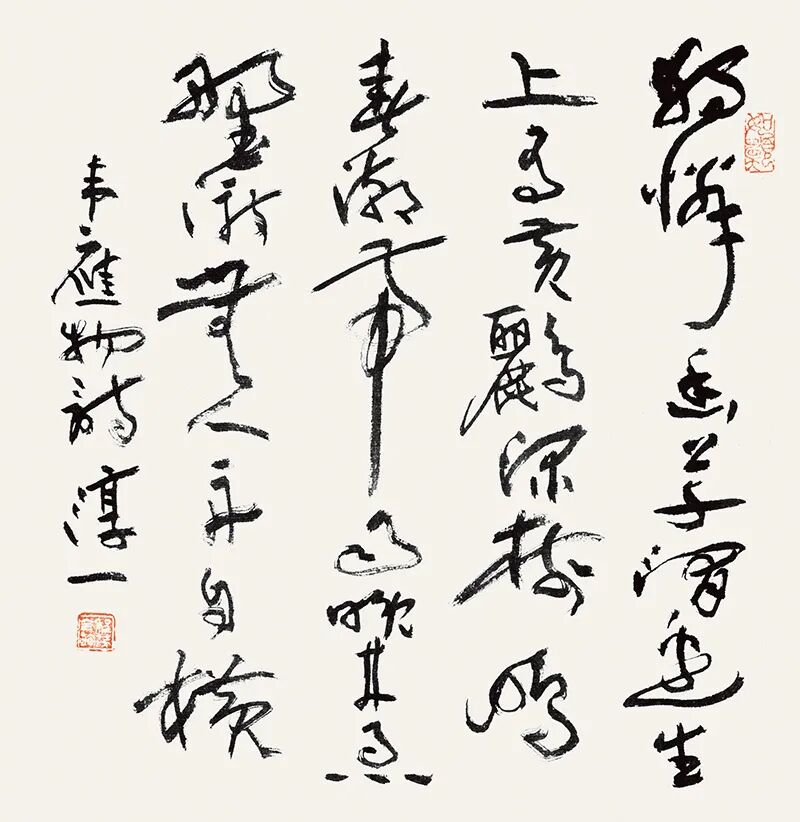 獨憐幽草澗邊生
上有黄鸝深樹鳴
春潮帶雨晚来急
野渡無人舟自横
韋應物詩 淳一